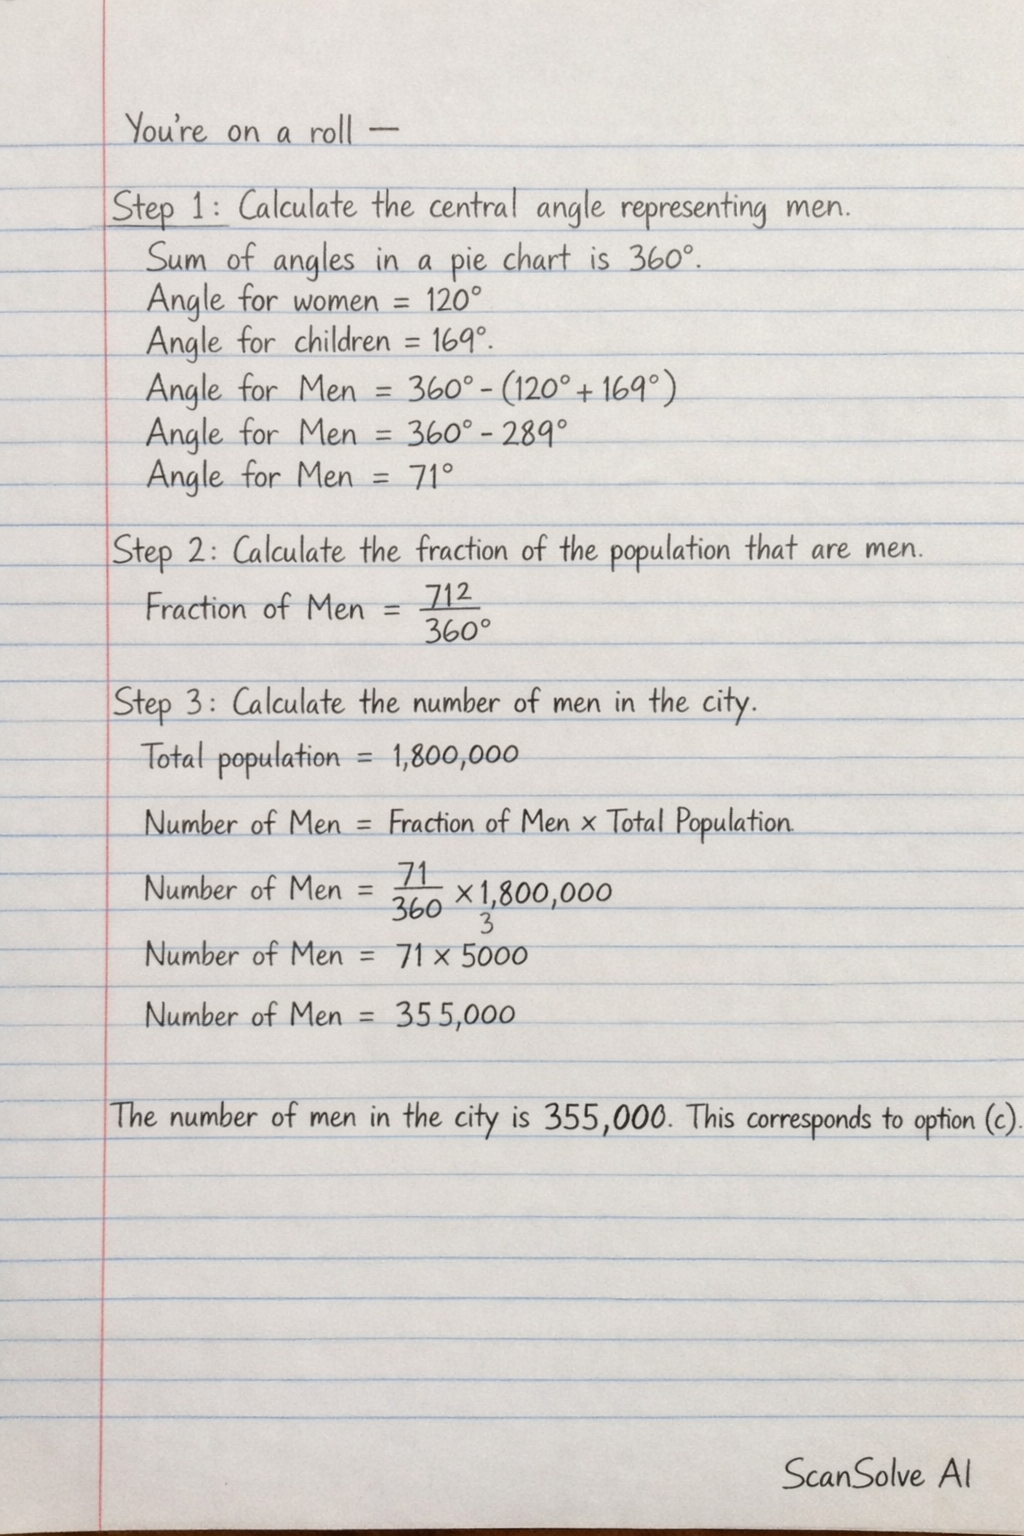 You're on a roll —
Step 1: Calculate the central angle representing men.
Sum of angles in a pie chart is 360°.
Angle for women = 120°
Angle for children = 169°.
Angle for Men = 360° - (120° + 169°)
Angle for Men = 360° - 289°
Angle for Men = 71°
Step 2: Calculate the fraction of the population that are men.
Fraction of Men = 712/360°
Step 3: Calculate the number of men in the city.
Total population = 1,800,000
Number of Men = Fraction of Men × Total Population.
Number of Men = 71/360 × 1,800,000
3
Number of Men = 71 × 5000
Number of Men = 355,000
The number of men in the city is 355,000. This corresponds to option (c).
ScanSolve AI